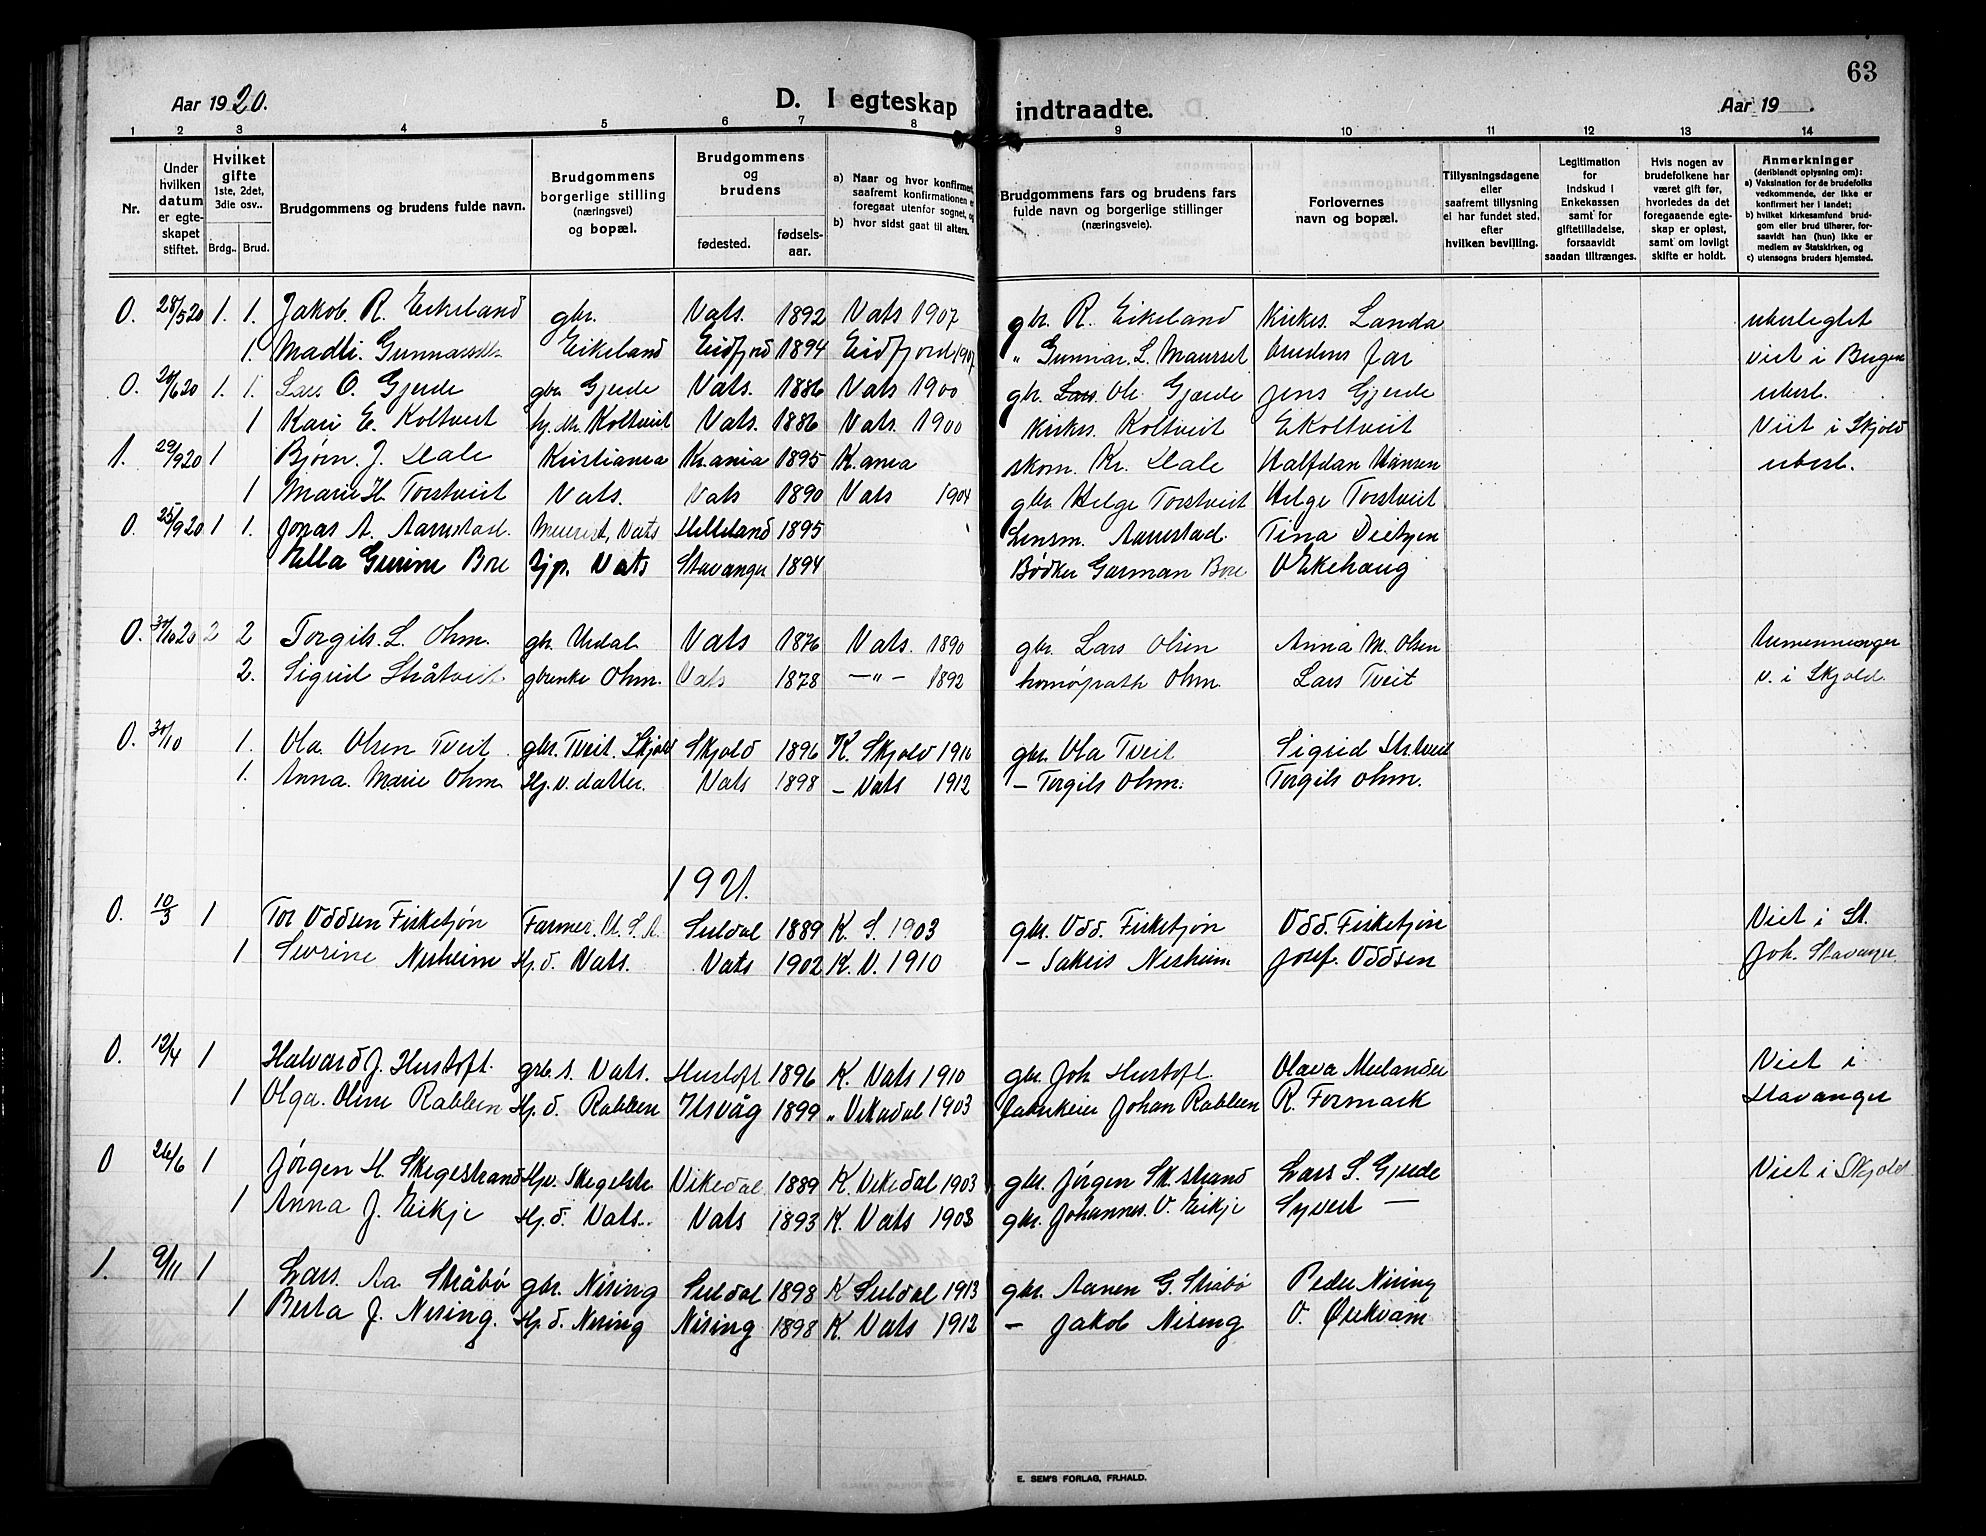 63
Aar 1920. D. I egteskap indtraadte. Aar 19 .
1 2 3 4 5 6 7 8 9 10 11 12 13 14
Nr.
Under hvilken datum er egteskapet stiftet.
Hvilket gifte 1ste, 2det, 3die osv.. Brdg.. Brud.
Brudgommens og brudens fulde navn.
Brudgommens borgerlige stilling (næringsvei) og bopæl.
Brudgommens og brudens fødested. fødselsaar.
a) Naar og hvor konfirmert, saafremt konfirmationen er foregaat utenfor sognet, og
b) hvor sidst gaat til alters.
Brudgommens fars og brudens fars fulde navn og borgerlige stillinger (næringsveie).
Forlovernes navn og bopæl.
Tillysningsdagene eller saafremt tillysning ei har fundet sted, efter hvilken bevilling.
Legitimation for Indskud i Enkekassen samt for giftetilladelse, forsaavidt saadan tiltrænges.
Hvis nogen av brudefolkene har været gift før, hvorledes da det foregaaende egteskap er opløst, samt om lovligt skifte er holdt.
Anmerkninger (deriblandt oplysning om): a) Vaksination for de brudefolks vedkommende, der ikke er konfirmert her i landet; b) hvilket kirkesamfund brudgom eller brud tilhører, forsaavidt han (hun) ikke er medlem av Statskirken, og c) utensogns bruders hjemsted.
0. 28/5 20 1. 1. Jakob. R. Eikeland gbr. Vats. 1892 Vats 1907 gbr. R. Eikeland Kirkes. Landa
1. Madli. Eikeland Eidfjord 1894 Eidfjord 1907 " Gunnar. L. Maurset brudens far viet i
0. 1. 1. Lars O. Gjerde gbr Gjerde Vats. 1886 Vats 1900 gbr. Ole Gjerde Jens Gjerde
1 Kari E. Koltveit Koltveit Vats. 1886 Vats. 1900 Kirkes. Koltveit E Koltveit Viet i Skjold
1. 29/9 20 1 Bjørn. J. Dale Kristiania Kr.ania 1895 K.ania skom. Kr. Dale Halfdan Hansen
1 Marie H. Torstveit Vats. Vats 1890 Vats 1904 gbr Helge Torstveit Helge Torstveit
0. 25/9 20 1 1. Jonas A. Aarrestad. Vats Helleland 1895 Lensm. Aarrestad. Tina
Ella Bore Vats Stavanger 1894 Bødker Garman Bore
0. 30/10 20 2 2 Torgils. L. Ohm. gbr. Vats 1876 Vats. 1890 gbr. Lars Olsen Anna M. Olsen
2. Sigrid Stråtveit gbrenke Ohm. Vats 1878 —"— 1892 homøpath Ohm. Lars Tveit v. i Skjold.
0. 30/10 1. Ola Olsen Tveit gbr. Tveit. Skjold Skjold 1896 K. Skjold 1910 gbr. Ola Tveit Sigrid
1. Anna. Marie Ohm. Hj. v. datter. Vats 1898 – Vats 1912 – Torgils Ohm. Torgils Ohm.
1921.
0. 10/3 1 Tor Oddsen Fisketjøn Farmer. U. S. A. Suldal 1889 K. S. 1903 gbr. Odd. Fisketjøn Odd. Fisketjøn Viet i St.
1 Sevrine Nesheim Hj. d. Vats. Vats 1902 K. V. 1910 – Sakris Nesheim Josef. Oddsen Joh. Stavanger
0. 12/4 1 Halvard J. Hustoft. gbr. s. Vats. Hustoft 1896 K. Vats 1910 gbr. Joh Hustoft. Olava Viet i
1 Olga. Rableen Hj. d. Rableen Ilsvåg 1899 „ Vikedal 1903 Johan Rableen R. Formark Stavanger
0 26/6 1 Jørgen H. Skegestrand Vikedal 1889 K. Vikedal 1903 gbr. Jørgen Sk.strand Lars S. Gjerde Viet i Skjold
1 Anna J. Eikje Hj. d. Vats.. Vats 1893 K. Vats 1908 gbr. Johannes. V. Eikje Syvert —
1. 9/11 1 Lars. Aa. Stråbø gbr. Nising Suldal 1898 K Suldal 1913 gbr. Aanen G. Stråbø Peder Nising
1 Berta J. Nising. Hj. d. Nising Nising 1898 K. Vats 1912 – Jakob Nising V. Ørekvam
E. SEM'S FORLAG, FR.HALD.